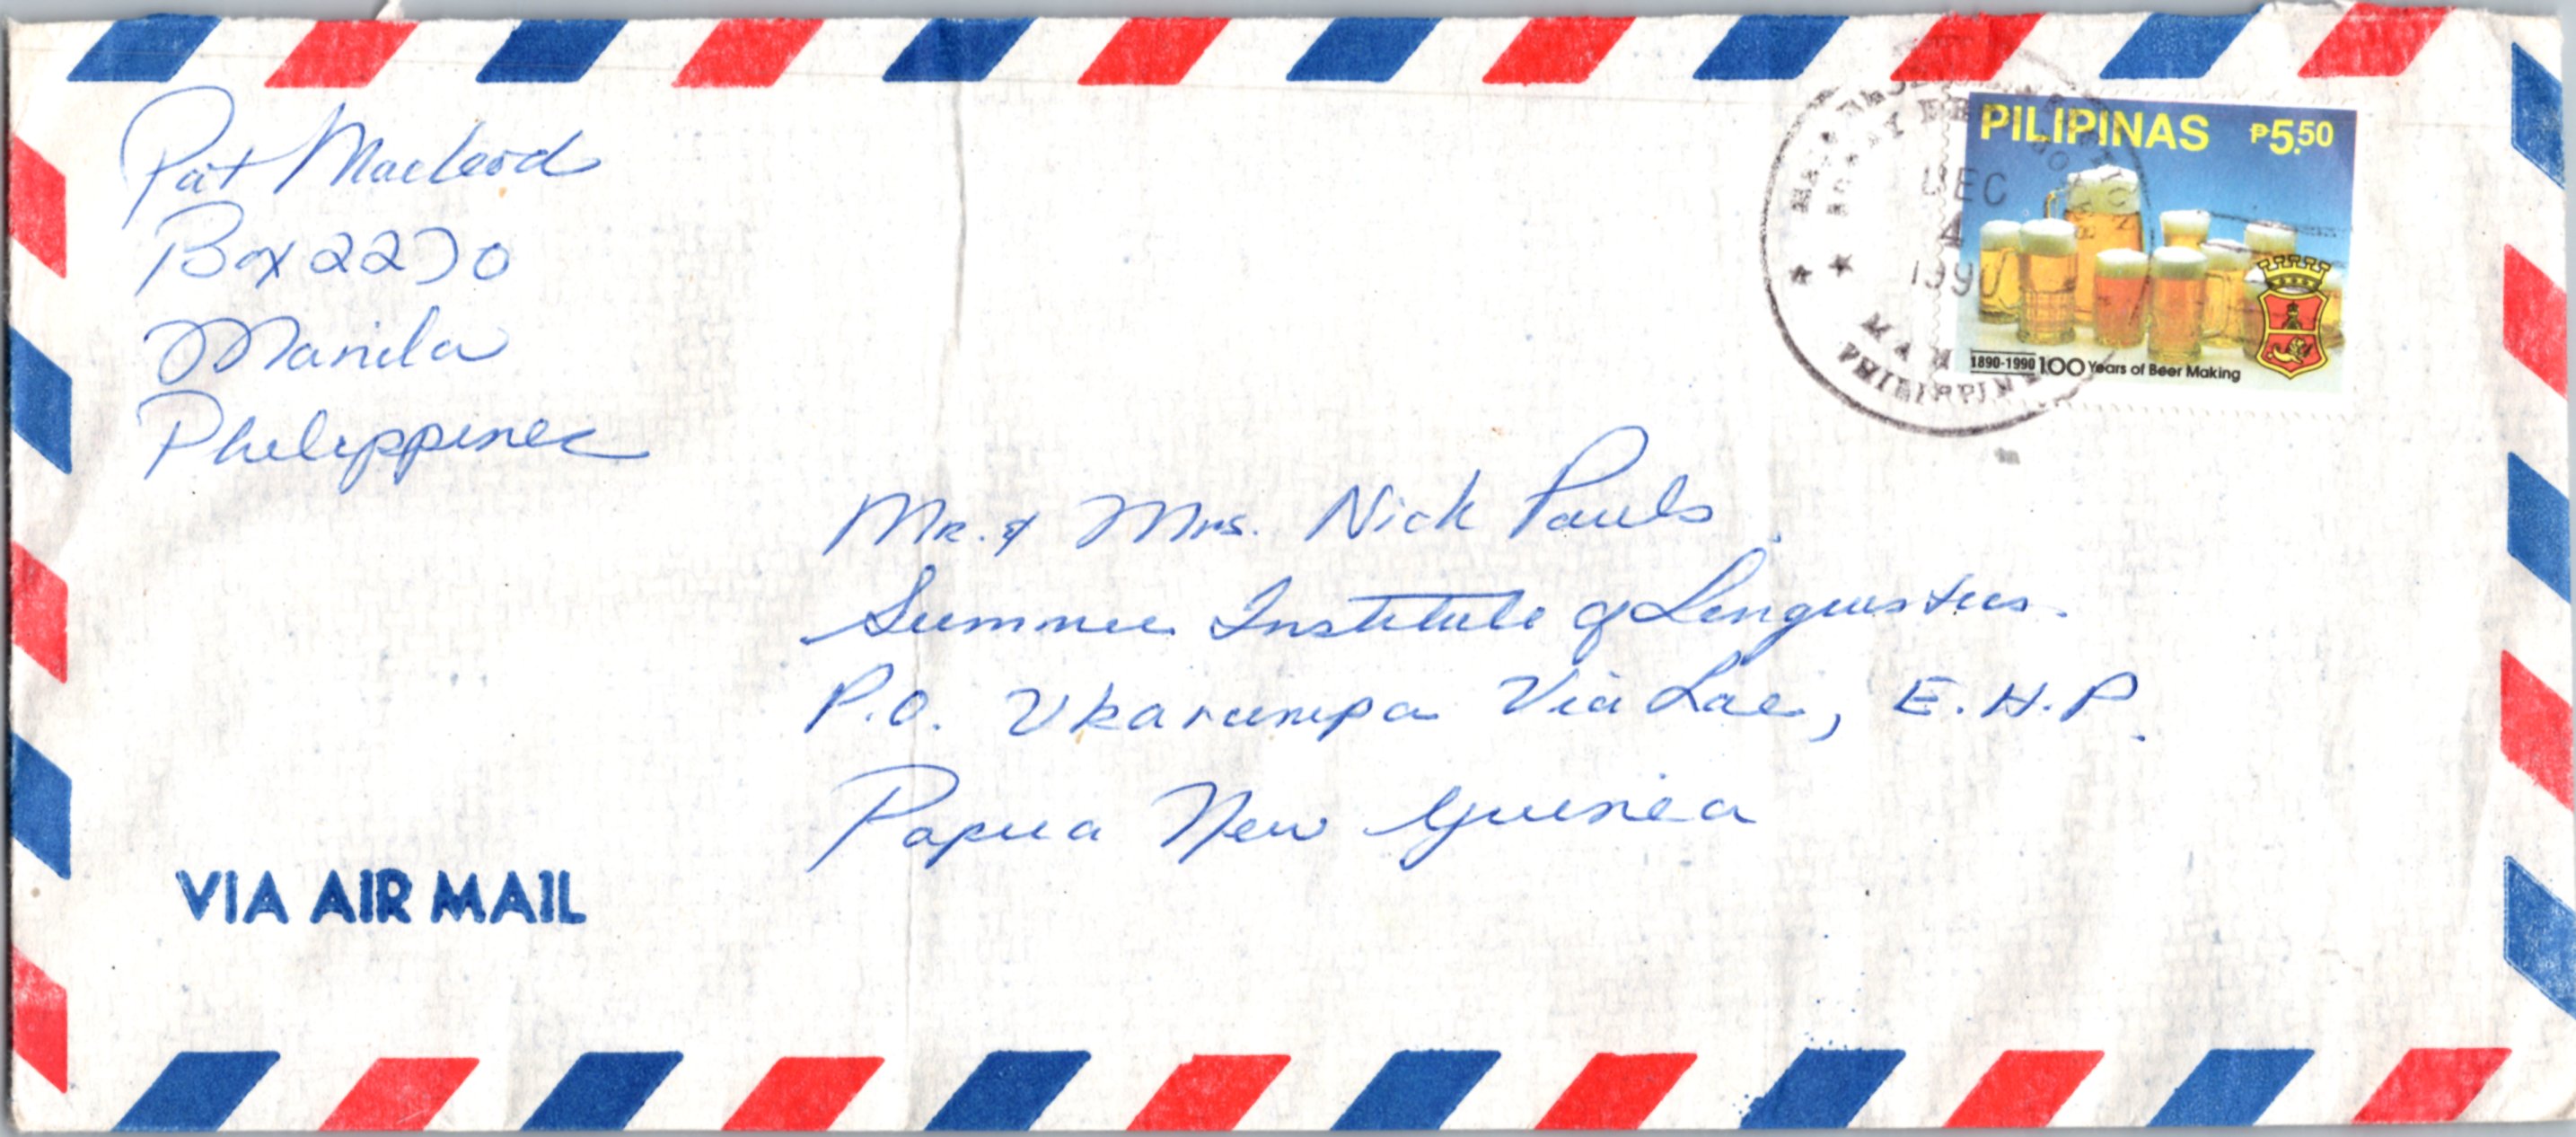 Pat Macleod
Box 2270
Manila
Philippines
PILIPINAS ₱5.50
DEC
4
1990
PHILIPPIN
1890-1990 100 Years of Beer Making
Mr. & Mrs. Nick Pauls
Summer Institute of Linguistics
P.O. Ukarumpa Via Lae, E.H.P.
Papua New Guinea
VIA AIR MAIL